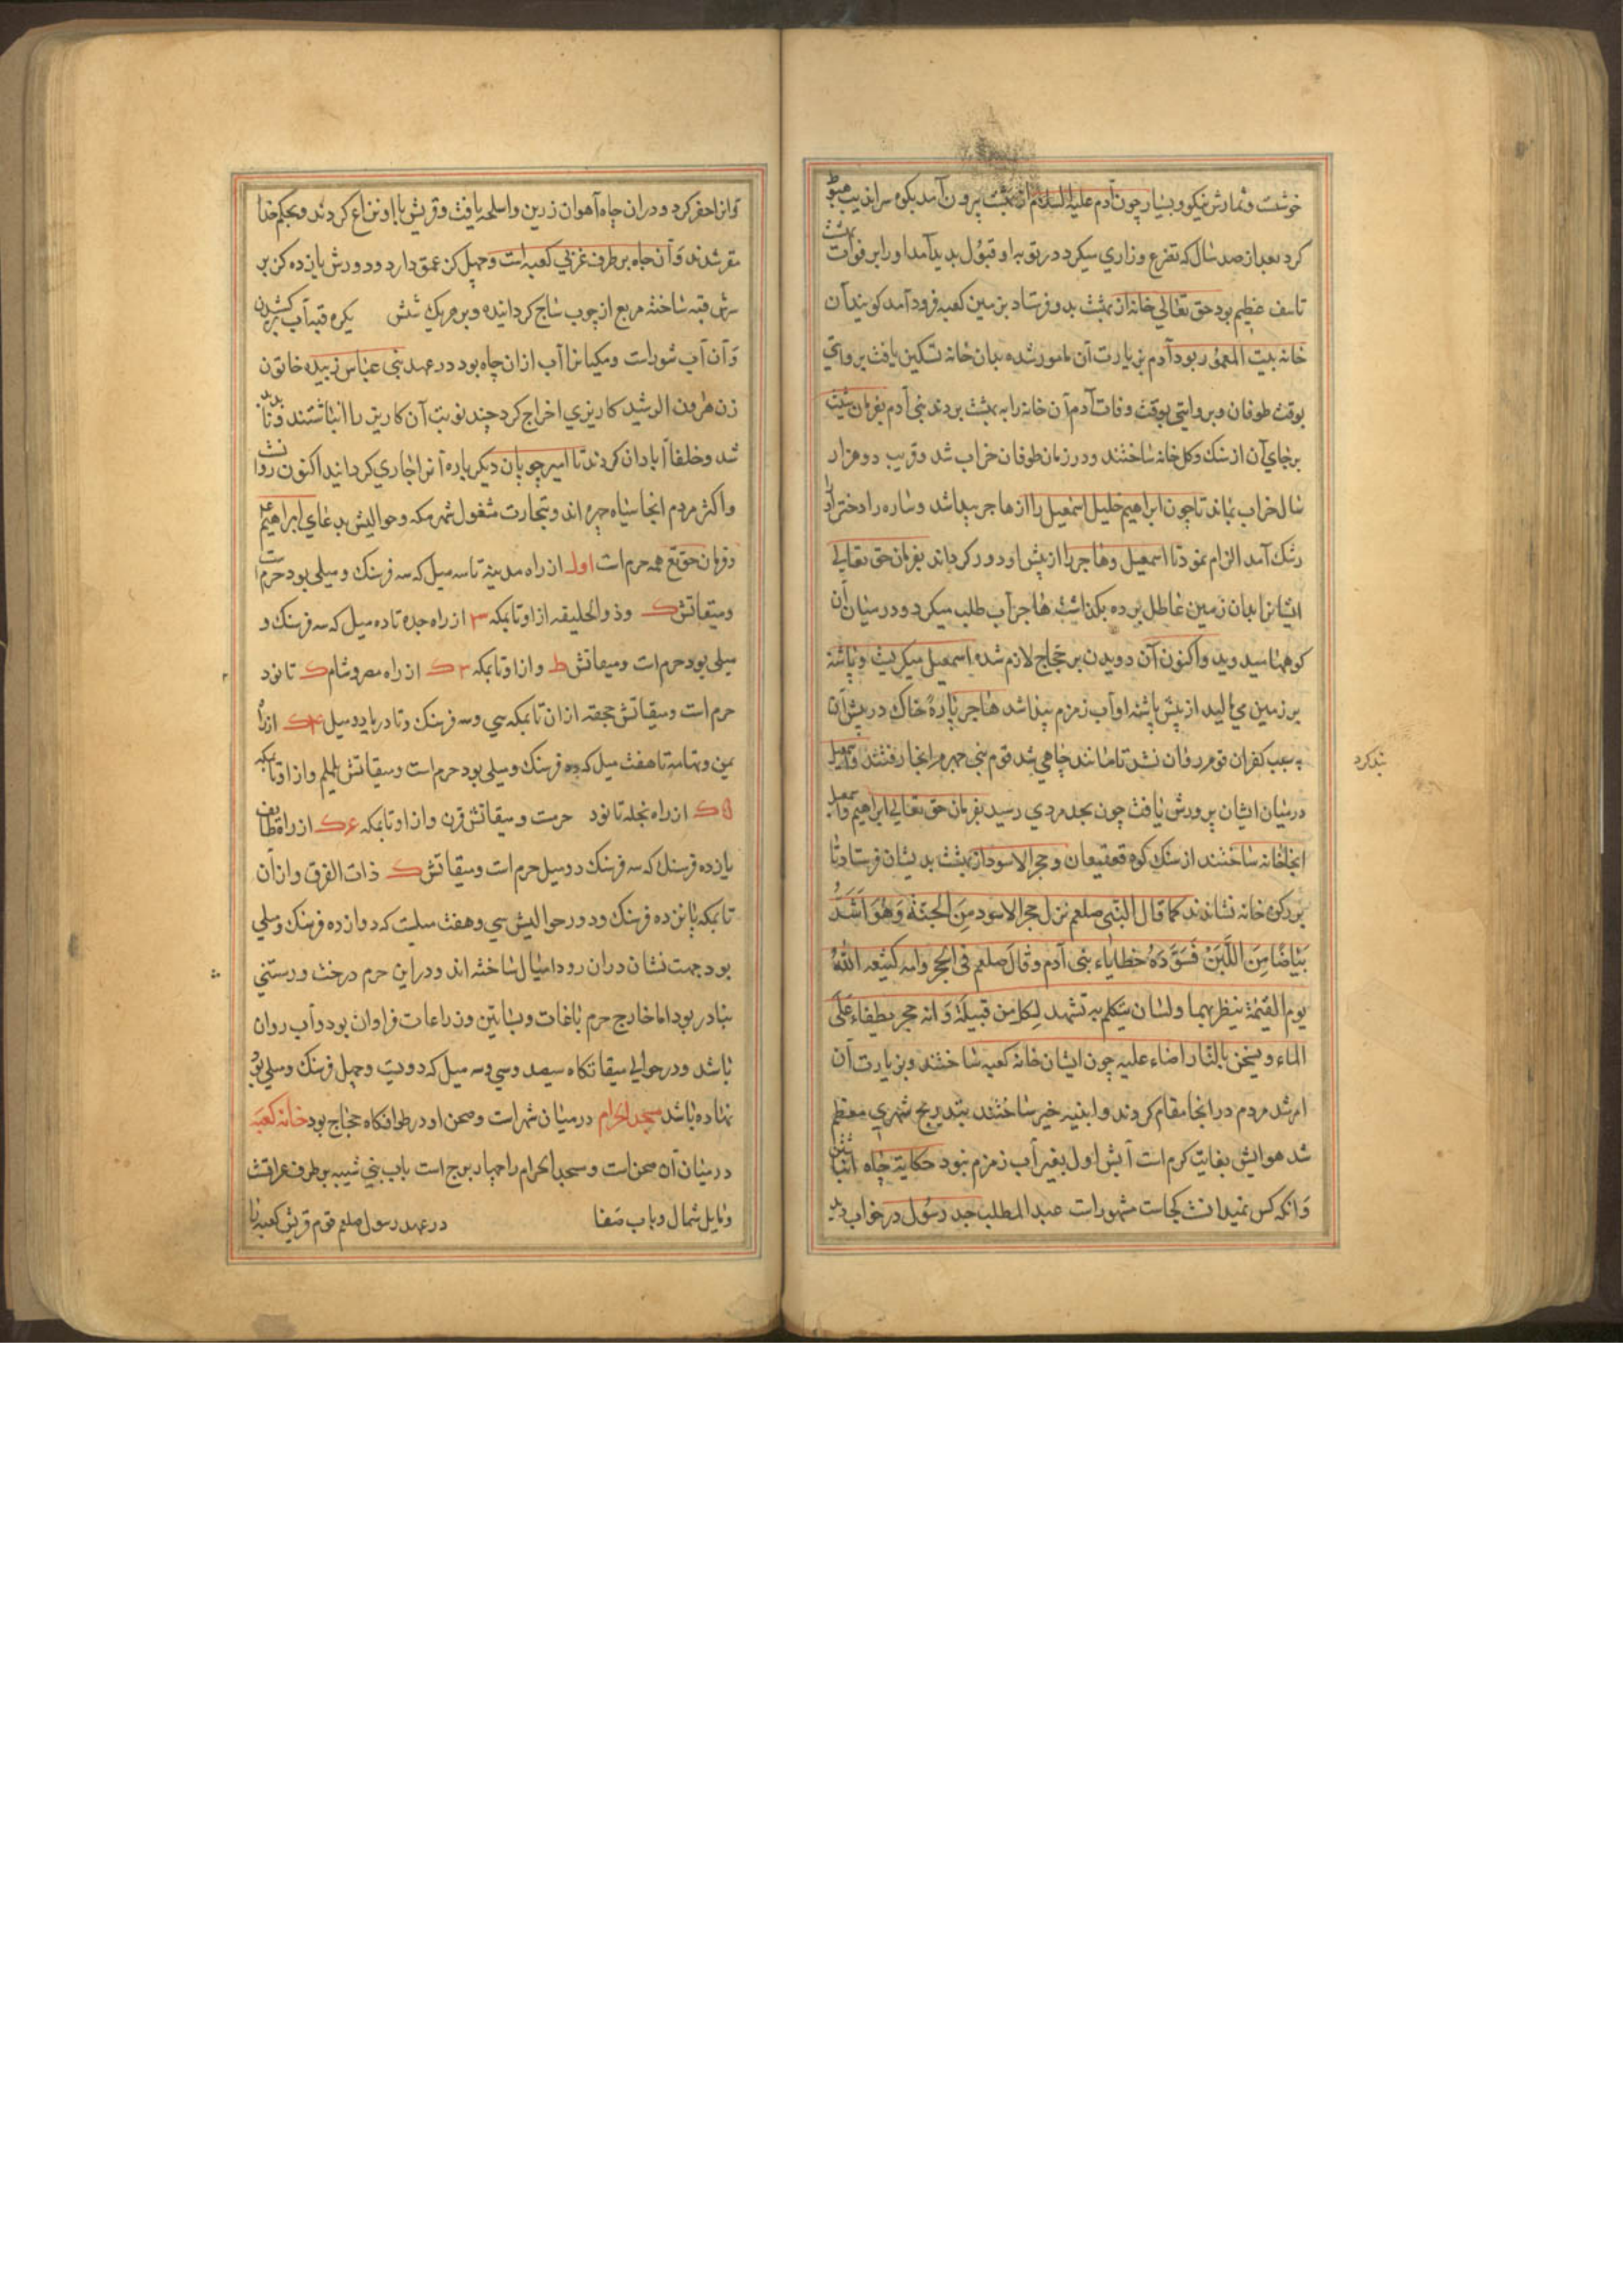 خوشست و ثمارش نیکو و بسیار چون آدم علیه السلام از بهشت بیرون آمد بکوه سراندیب هبوط
کرد بعد از صد سال که تضرع و زاری میکرد در توبه او قبول پدید آمد او را بر فوات بهشت
تاسف عظیم بود حق تعالی خانه از بهشت بدو فرستاد بزمین کعبه فرود آمد کویند آن
خانه بیت المعمور بود آدم بزیارت آن مامور شده بدان خانه تسکین یافت بروایتی
بوقت طوفان و بروایتی بوقت وفات آدم آن خانه را به بهشت بردند بنی آدم بفرمان شیث
برجای آن از سنک و کل خانه ساختند و در زمان طوفان خراب شد و قریب دو هزار
سال خراب بماند تا چون ابراهیم خلیل اسمعیل را از هاجر پیدا شد و ساره را دختر
رشک آمد الزام نمود تا اسمعیل و هاجر را از پیش او دور کرداند بفرمان حق تعالی
ایشانرا بدان زمین عاطل برده بکذاشت هاجر آب طلب میکرد و در میان آن
کوهها میدوید و اکنون آن دویدن بر حجاج لازم شده اسمعیل میکریست و پاشنه
بر زمین می مالید از پیش پاشنه او آب زمزم پیدا شد هاجر پاره خاک در پیش آن
به سبب کفران قوم روان نشد تا مانند چاهی شد قوم بنی جرهم را انجا رفتند و اسمعیل
بند کرد
درمیان ایشان پرورش یافت چون بحد مردی رسید بفرمان حق تعالی ابراهیم و اسمعیل
انجا خانه ساختند از سنک کوه قعیقعان و حجر الاسود از بهشت بدیشان فرستاد تا
بر رکن خانه نشاندند کما قال النبی صلعم نزل حجر الاسود من الجنة وهو اشد
بیاضا من اللبن فسودته خطایاء بنی آدم وقال صلعم فی الحجر وانه
یوم القیمة ینظر بهما ولسان یتکلم به تشهد لکل من قبیله وانه حجر یطفاء علی
الماء و یسخن بالنار اضاء علیه چون ایشان خانه کعبه ساختند و بزیارت آن
امر شد مردم در انجا مقام کردند و ابنیه خیر ساختند بتدریج شهری معظم
شد هوایش بغایت کرم است آبش اول بغیر آب زمزم نبود حکایة چاه انباشتن
و آنکه کس نمیدانست کجاست مشهورست عبد المطلب جد رسول در خواب دید
و آنرا حفر کرد و در ان چاه آهوان زرین و اسلحه یافت و قریش با او نزاع کردند و بحکم خدا
مقر شدند و آن چاه بر طرف غربی کعبه است و چهل کز عمق دارد و دورش یازده کز بر
سرش قبه ساخته مربع از چوب ساج کردانیده و برو هر یک شش بکره قبه آب کشیدن
و آن آب شورست و مکیانرا آب از ان چاه بود در عهد بنی عباس زبیده خاتون
زن هرون الرشید کاریزی اخراج کرد چند نوبت آن کاریز را انباشتند و نا پدید
شد و خلفا آبادان کردند تا امیر چوپان دیکر باره آنرا جاری کردانید اکنون روانست
و اکثر مردم انجا سیاه چهره اند و بتجارت مشغول شهر مکه و حوالیش بدعای ابراهیم
و فرمان حق تع همه حرم است اول از راه مدینه تا سه میل که سه فرسنک و میلی بود حرم است
و میقاتش ک وذو الحلیفه از او تا بمکه ۳ از راه جده تا ده میل که سه فرسنک و
میلی بود حرم است و میقاتش ط و از او تا بمکه ۳ ک از راه مصر و شام ک تا نود
حرم است و میقاتش حجفه ازان تا بمکه سی و سه فرسنک و تا دریا دو میل ۴ ک از راه
یمن و تهامه تا هفت میل که ده فرسنک و میلی بود حرم است و میقاتش یلملم و از او تا بمکه
۵ ک از راه نجد تا نود حرمت و میقاتش قرن و از او تا بمکه ۶ ک از راه طایف
یازده فرسنک که سه فرسنک دو میل حرم است و میقاتش ک ذات الفرق و از آن
تا بمکه پانزده فرسنک و دور حوالیش سی و هفت میلست که دوازده فرسنک و میلی
بود جهت نشان دران رود امیال ساخته اند و در این حرم درخت و رستنی
بنادر بود اما خارج حرم باغات و بساتین و زراعات فراوان بود و آب روان
باشد و در حوالی میقاتکاه سیصد و سی و سه میل که دویست و چهل فرسنک و میلی بود
نهاده باشد مسجد الحرام درمیان شهر است و صحن او در طوافکاه حجاج بود خانه کعبه
درمیان آن صحن است و مسجد الحرام را چهار برج است باب بنی شیبه بر طرف عراقست
و مایل شمال و باب صفا در عهد رسول صلعم قوم قریش کعبه را